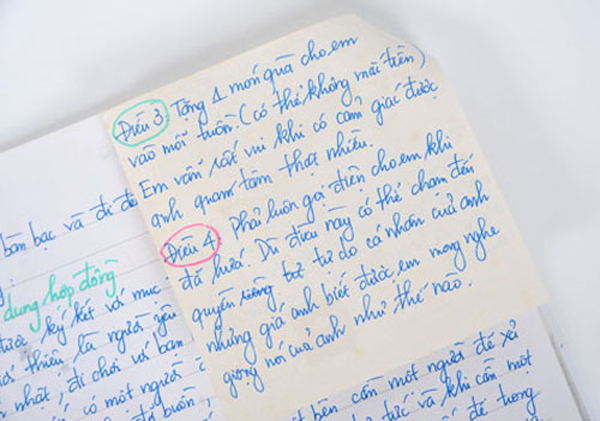 Điều 3: Tặng 1 món quà cho em
vào mỗi tuần. (có thể không mất tiền)
Em vẫn rất vui khi có cảm giác được
anh quan tâm thật nhiều.
Điều 4: Phải luôn gọi điện cho em khi
đã hứa. Dù điều này có thể chạm đến
quyền tự do cá nhân của anh
nhưng giá anh biết được em mong nghe
giọng nói của anh như thế nào.
bàn bạc và đi đế
dung hợp đồng
được ký kết với mục
giới thiệu là người yêu
nhất, đi chơi với bạn
có một người
đỡ buồn,
bên cần một người để xả
tức và khi cần một
để tương